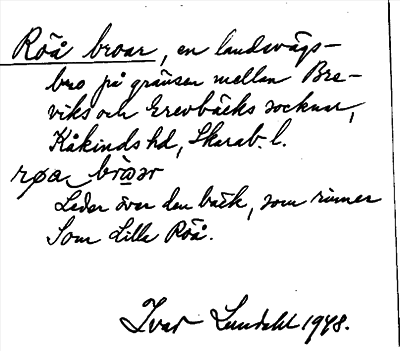 Röå broar, en landsvägs-
bro på gränsen mellan Bre-
viks och Erevbäcks socknar,
Kåkinds hd, Skarab. l.
røa bròar
Leder över den bäck, som rinner
Som Lilla Röå.
Ivar Lundahl 1948.